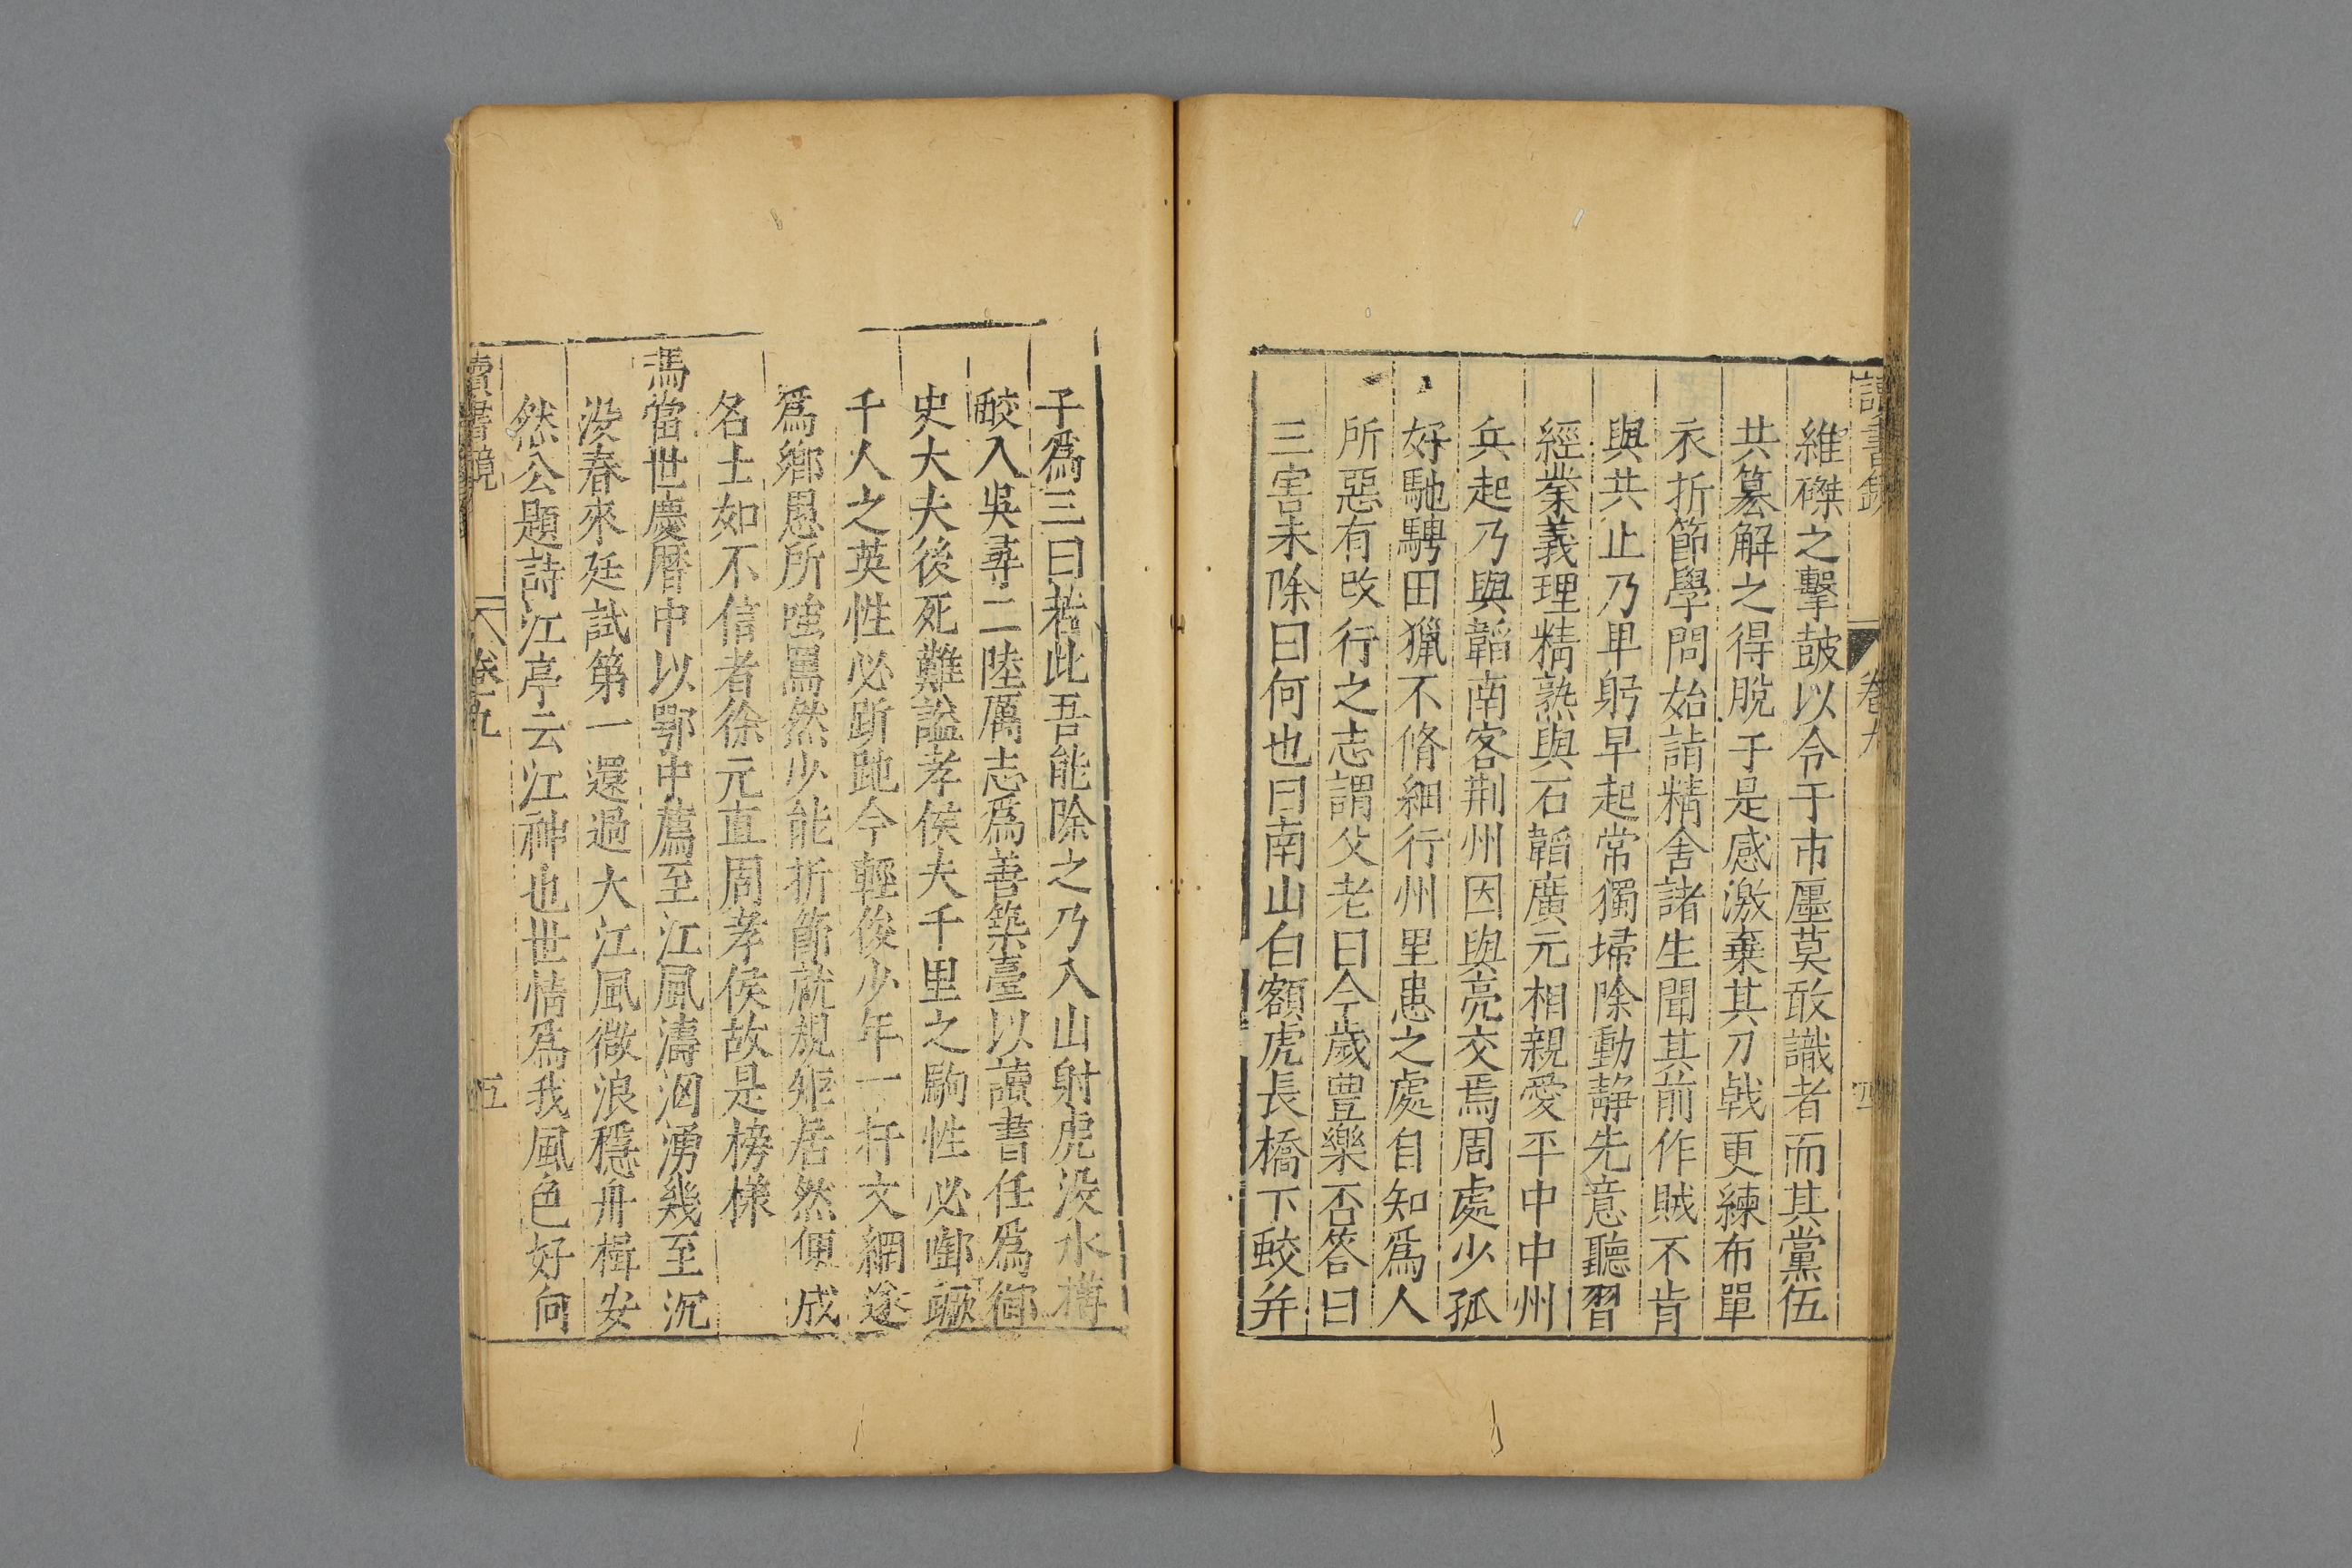 讀書鏡 卷九 四
維磔之擊皷以令于市廛莫敢識者而其黨伍
共篡解之得脫于是感激棄其刀戟更練布單
衣折節學問始詣精舍諸生聞其前作賊不肯
與共止乃卑躬早起常獨埽除動靜先意聽習
經業義理精熟與石韜廣元相親愛平中中州
兵起乃與韜南客荆州因與亮交焉周處少孤
好馳騁田獵不脩細行州里患之處自知爲人
所惡有改行之志謂父老曰今歲豊樂否答曰
三害未除曰何也曰南山白額虎長橋下蛟并
子爲三曰若此吾能除之乃入山射虎没水搏
蛟入吳尋二陸厲志爲善築臺以讀書任爲御
史大夫後死難謚孝侯夫千里之駒性必啣蹶
千人之英性必跅跎今輕俊少年一扞文網遂
爲鄉愚所嗤罵然少能折節就規矩居然便成
名士如不信者徐元直周孝侯故是榜樣
馮當世慶曆中以鄂中薦至江風濤洶湧幾至沉
没春來廷試第一還過大江風微浪穩舟楫安
然公題詩江亭云江神也世情爲我風色好向
讀書鏡 卷九 五